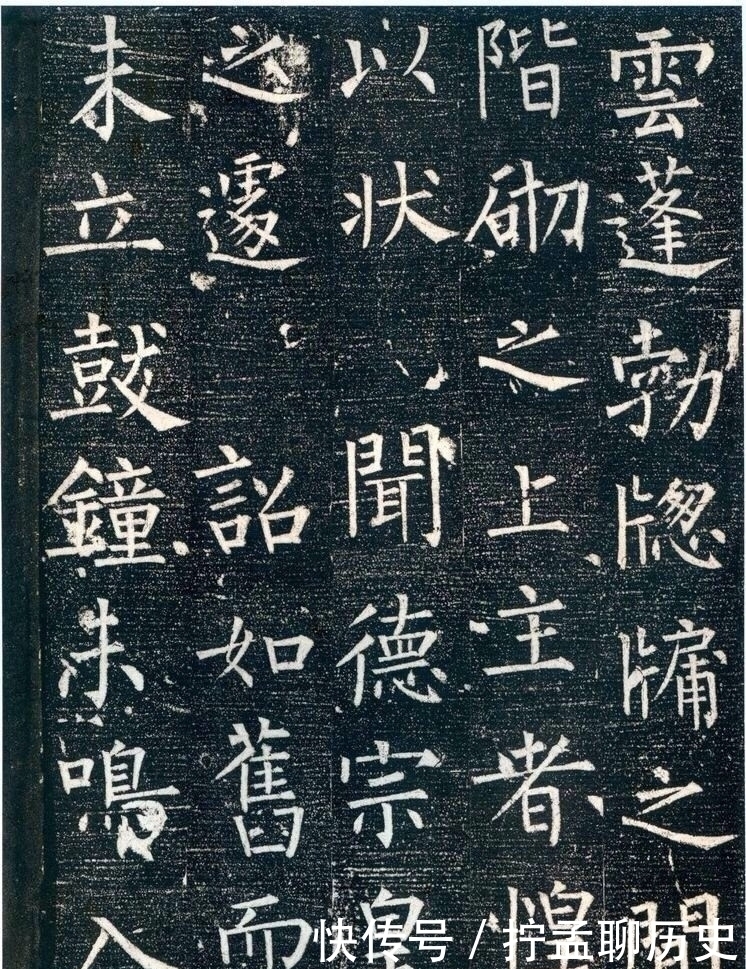 雲蓬勃牕牖之間
階砌之上主者惶
以状聞德宗皇
之遽詔如舊而
未立鼓鐘未鳴入
快传号 / 拧孟聊历史